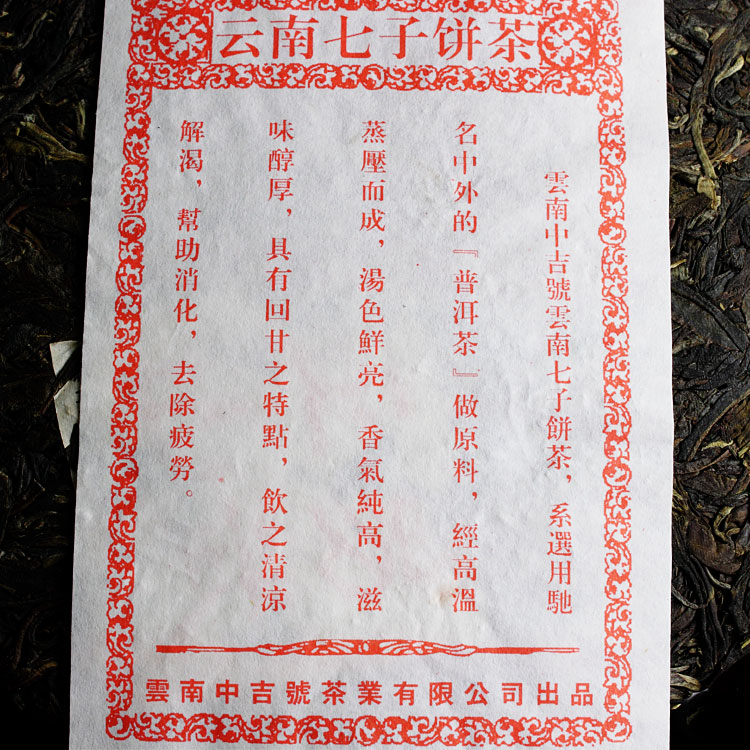 云南七子饼茶
雲南中吉號雲南七子餅茶，系選用馳
名中外的『普洱茶』做原料，經高溫
蒸壓而成，湯色鮮亮，香氣純高，滋
味醇厚，具有回甘之特點，飲之清涼
解渴，幫助消化，去除疲勞。
雲南中吉號茶業有限公司出品